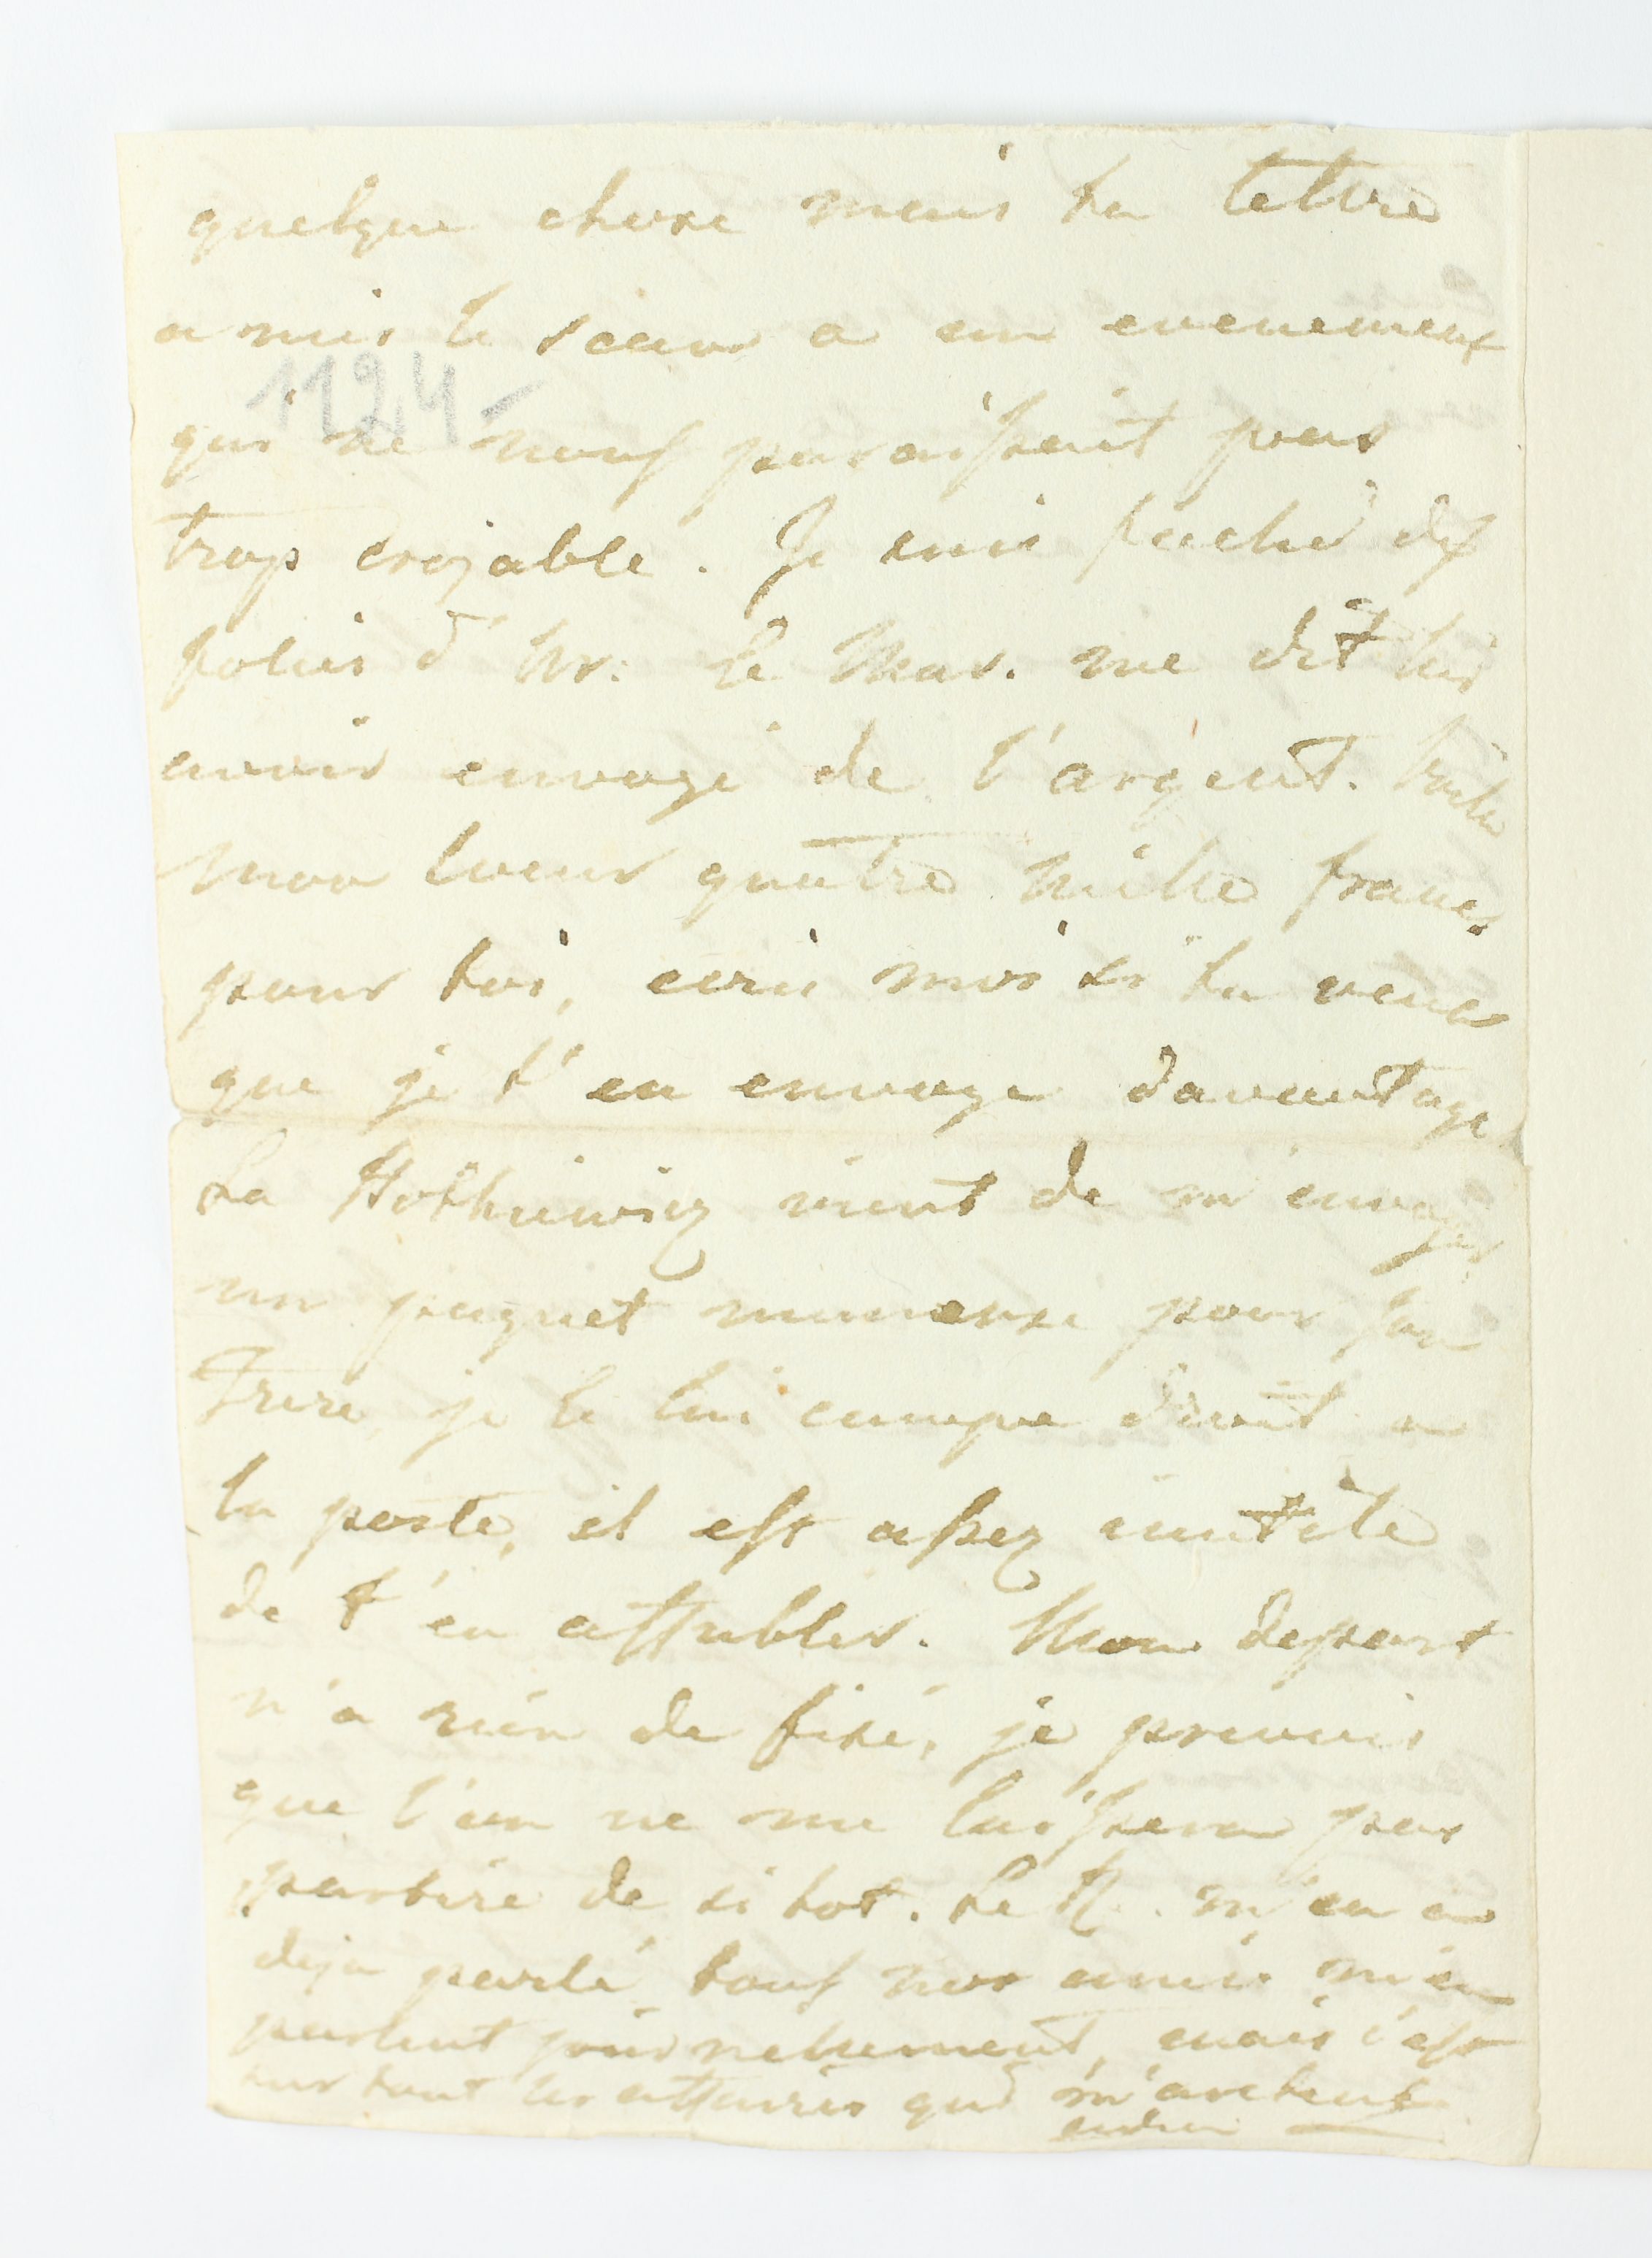 quelque chose mais ta lettre
a mis le sceau a un evenement
1124-
qui ne nous paraissait pas
trop crojable. Je suis faché des
folies d' Mr: le Mar. me dit lui
avoir envoyé de l'argent. Voila
mon coeur quatre mille francs
pour toi, ecris moi si tu veux
que je t'en envoye davantage
La vient de m'envoyer
un paquet immense pour son
Frere, je le lui envoye droit a
la poste, il est assez inutile
de t'en affubler. Mon depart
n'a rien de fixé, je prevois
que l'on ne me laissera pas
partire de si tot. Le R. m'en a
deja parlé tous nos amis m'en
parlent journellement, mais c'est
sur tout les affaires qui m'arretent